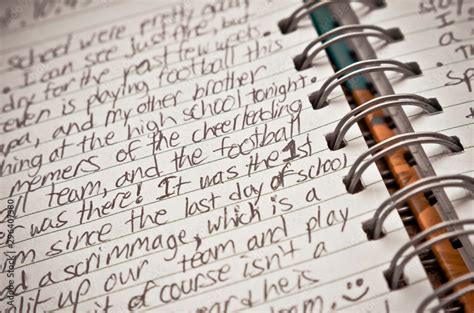 10:45
school were pretty
. I can see just fine, but
dry for the past few weeks.
even is playing football this
pa, and my other brother
hing at the high school tonight.
memers of the cheerleading
ll team, and the football
was there! It was the 1st
m since the last day of school
d a scrimmage, which is a
lit up our team and play
t of course isn't a
and he is :)
Adobe Stock